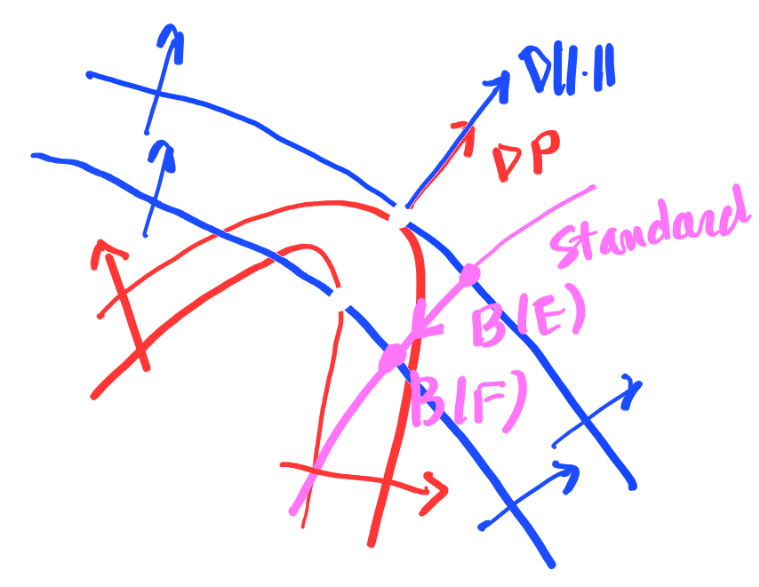 ∇||·||
∇P
Standard
B(E)
B(F)